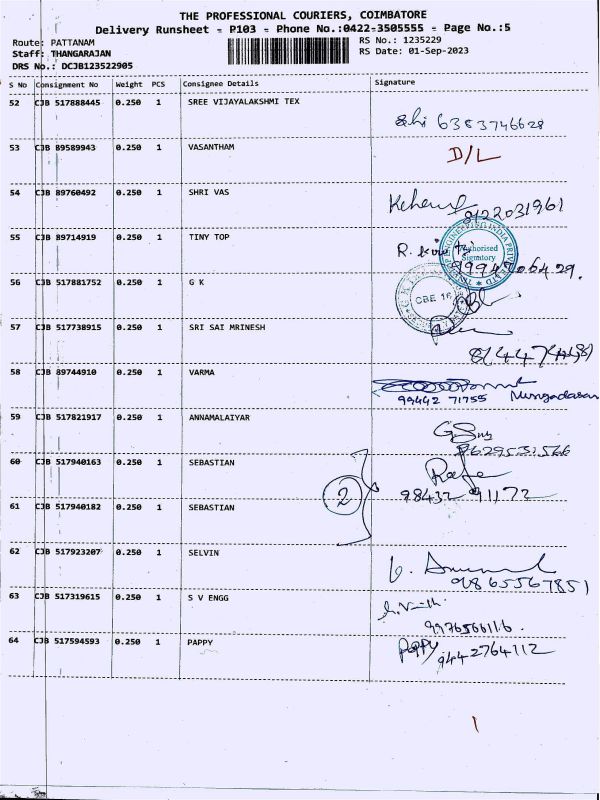 THE PROFESSIONAL COURIERS, COIMBATORE
Delivery Runsheet - P103 - Phone No.:0422-3505555 - Page No.:5
Route: PATTANAM
RS No.: 1235229
Staff: THANGARAJAN
RS Date: 01-Sep-2023
DRS No.: DCJB123522905
S No Consignment No Weight PCS Consignee Details Signature
52 CJB 517888445 0.250 1 SREE VIJAYALAKSHMI TEX
6383746628
53 CJB 89589943 0.250 1 VASANTHAM
D/L
54 CJB 89760492 0.250 1 SHRI VAS
9122031961
55 CJB 89714919 0.250 1 TINY TOP
R.
Authorised
Signatory
56 CJB 517881752 0.250 1 G K
CBE 16
57 CJB 517738915 0.250 1 SRI SAI MRINESH
58 CJB 89744910 0.250 1 VARMA
99442 71755
59 CJB 517821917 0.250 1 ANNAMALAIYAR
9629531566
60 CJB 517940163 0.250 1 SEBASTIAN
2
98432 91172
61 CJB 517940182 0.250 1 SEBASTIAN
62 CJB 517923207 0.250 1 SELVIN
9865567851
63 CJB 517319615 0.250 1 S V ENGG
9976566116.
64 CJB 517594593 0.250 1 PAPPY
Pappy 9442764112